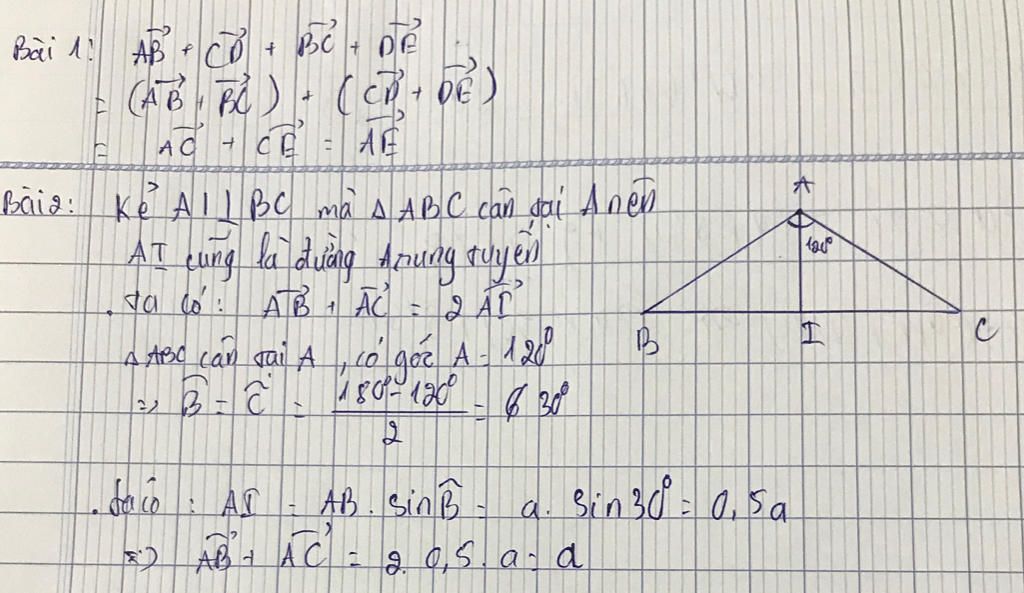 Bài 1: $\overrightarrow{AB} + \overrightarrow{CD} + \overrightarrow{BC} + \overrightarrow{DE}$
= ($\overrightarrow{AB} + \overrightarrow{BC}$) + ($\overrightarrow{CD} + \overrightarrow{DE}$)
= $\overrightarrow{AC} + \overrightarrow{CE} = \overrightarrow{AE}$
Bài 2: Kẻ AI ⊥ BC mà △ABC cân tại A nên
AI cũng là đường trung tuyến
. ta có: $\overrightarrow{AB} + \overrightarrow{AC} = 2\overrightarrow{AI}$
△ABC cân tại A, có góc A = 120°
=> $\widehat{B} = \widehat{C} = \frac{180° - 120°}{2}$ = 30°
. ta có : AI = AB . sin$\widehat{B}$ = a. sin30° = 0,5a
=> $\overrightarrow{AB} + \overrightarrow{AC}$ = 2. 0,5. a = a
A
120°
B
I
C